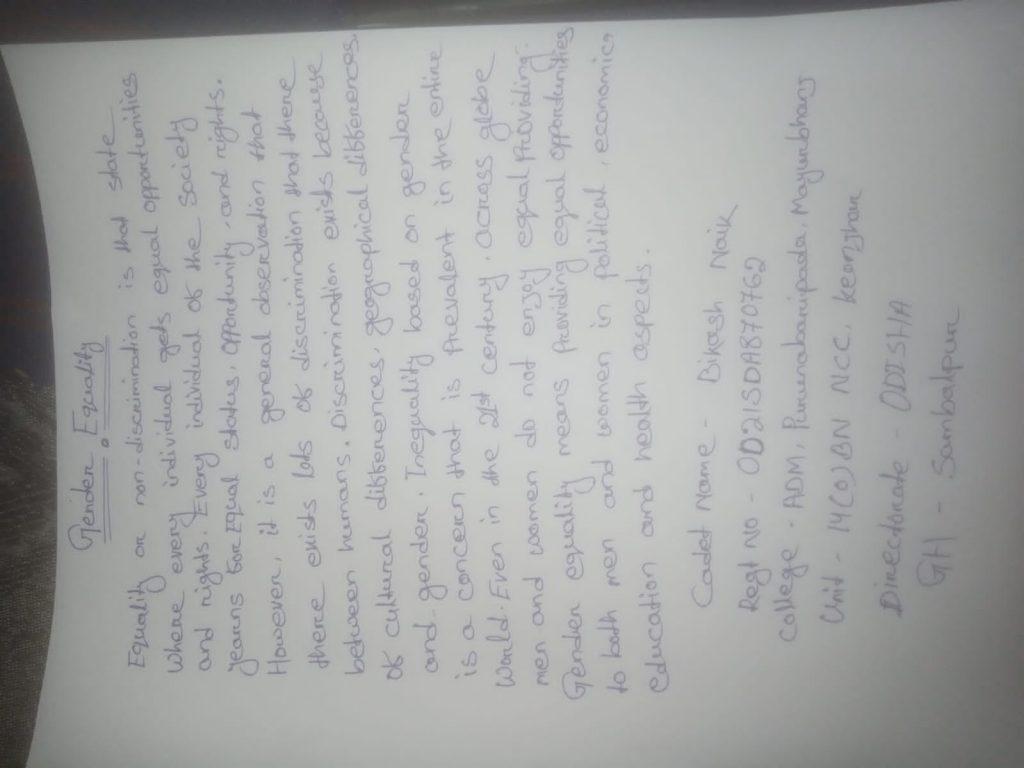 Gender Equality
Equality or non-discrimination is that state
where every individual gets equal opportunities
and rights. Every individual of the society
yearns for Equal status, opportunity, and rights.
However, it is a general observation that
there exists lots of discrimination that there
between humans. Discrimination exists because
of cultural differences, geographical differences,
and gender. Inequality based on gender
is a concern that is prevalent in the entire
World. Even in the 21st century, across globe
men and women do not enjoy equal Providing.
Gender equality means Providing equal opportunities
to both men and women in political, economic,
education and health aspects.
Cadet Name - Bikash Naik
Regt No - OD21SDA870762
College - ADM, Purunabaripada, Mayurbhanj
Unit - 14(O)BN NCC, Keonjhar
Directorate - ODISHA
GH - Sambalpur